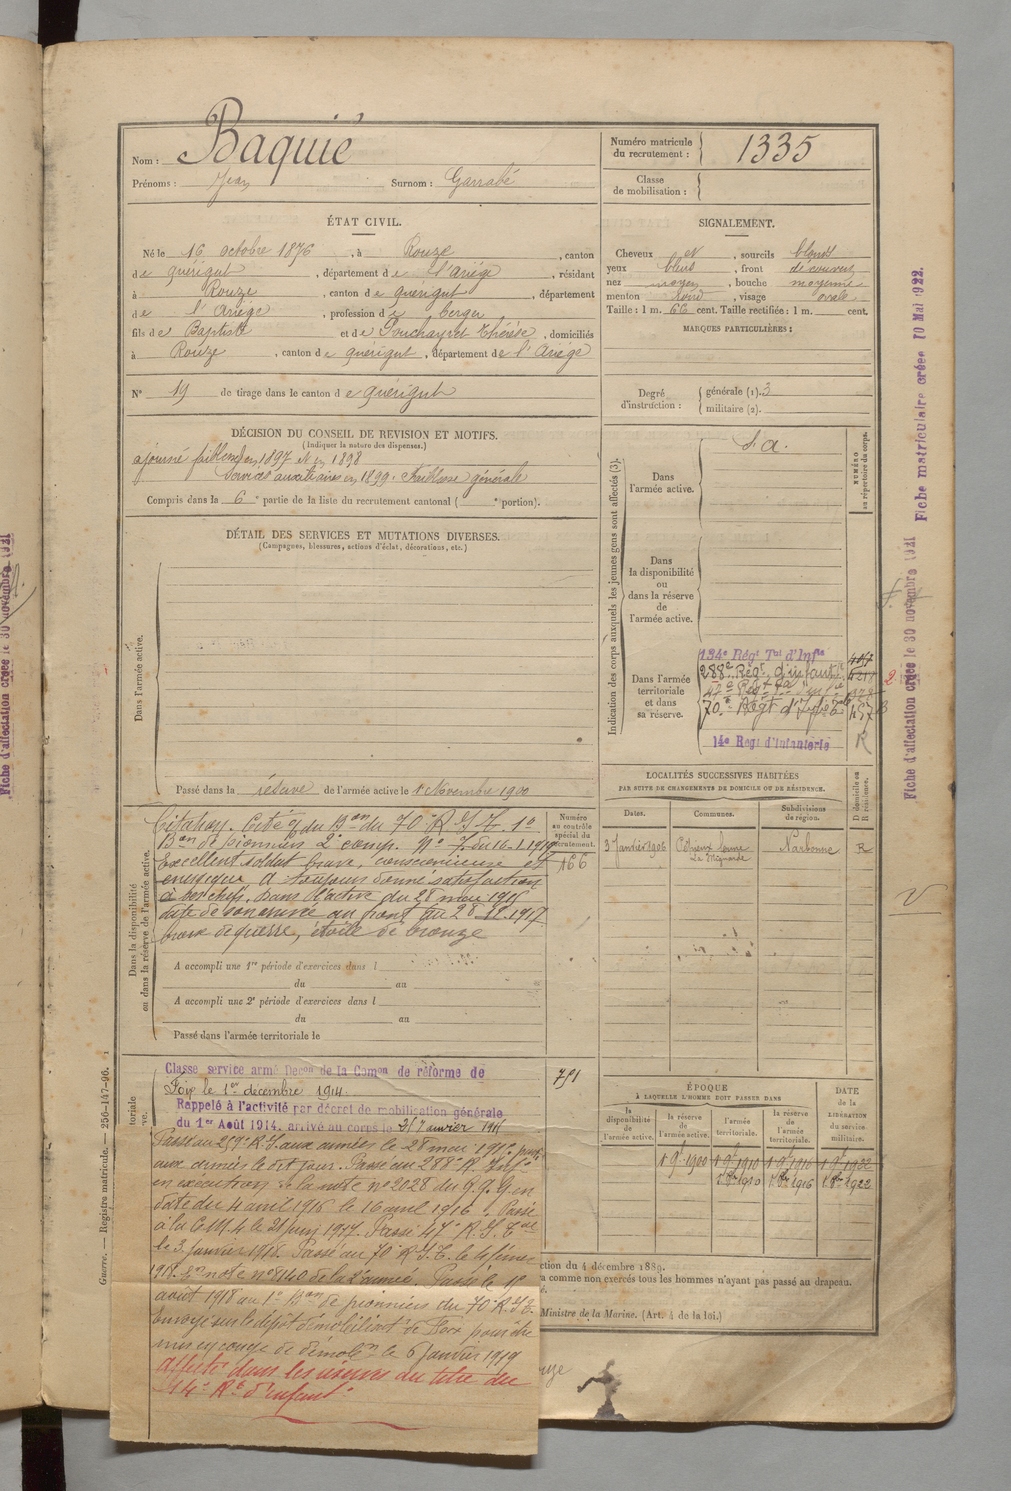 Nom : Baquié
Prénoms : Jean Surnom : Garrabé
Numéro matricule du recrutement : 1335
Classe de mobilisation :
ÉTAT CIVIL.
Né le 16 octobre 1876, à Rouze, canton
de quérigut, département de l'Ariége, résidant
à Rouze, canton de quérigut, département
de l'Ariége, profession de berger
fils de Baptiste et de Thérèse, domiciliés
à Rouze, canton de quérigut, département de l'Ariége
N° 19 de tirage dans le canton de quérigut
SIGNALEMENT.
Cheveux et, sourcils blonds
yeux bleus, front découvert
nez moyen, bouche moyenne
menton rond, visage ovale
Taille : 1 m. 66 cent. Taille rectifiée : 1 m. cent.
MARQUES PARTICULIÈRES :
Degré d'instruction : générale (1). 3
militaire (2).
DÉCISION DU CONSEIL DE REVISION ET MOTIFS.
(Indiquer la nature des dispenses.)
ajourné faiblesse en 1897 et en 1898
Services auxiliaires en 1899. Faiblesse générale
Compris dans la 6e partie de la liste du recrutement cantonal ( e portion).
DÉTAIL DES SERVICES ET MUTATIONS DIVERSES.
(Campagnes, blessures, actions d'éclat, décorations, etc.)
Dans l'armée active.
Passé dans la réserve de l'armée active le 1 Novembre 1900
Indication des corps auxquels les jeunes gens sont affectés (3).
NUMÉRO au répertoire du corps.
Dans l'armée active. S a.
Dans la disponibilité ou dans la réserve de l'armée active.
Dans l'armée territoriale et dans sa réserve.
134e Régt Tal d'Infie
288e Régt d'infanterie
70e Régt d'Infie Tale
14e Régt d'Infanterie
R
Dans la disponibilité ou dans la réserve de l'armée active.
Numéro au contrôle spécial du recrutement.
166
Citation. Cité O/ du Bon du 70e R.I.T. 1er
Bon de pionniers 2e comp. No 7 du 16-1-1919
Excellent soldat brave, consciencieux et
énergique a toujours donné satisfaction
à ses chefs. Dans l'active du 28 mai 1915
date de son arrivée au front au 28-12-1917
croix de guerre, étoile de bronze
A accompli une 1re période d'exercices dans l
du au
A accompli une 2e période d'exercices dans l
du au
Passé dans l'armée territoriale le
LOCALITÉS SUCCESSIVES HABITÉES
PAR SUITE DE CHANGEMENTS DE DOMICILE OU DE RÉSIDENCE.
Dates. Communes. Subdivisions de région. D domicile ou R résidence.
3 Janvier 1906 La Mignarde Narbonne R
Classé service armé Décon de la Comon de réforme de
Foix le 1er décembre 1914
Rappelé à l'activité par décret de mobilisation générale
du 1er Août 1914, arrivé au corps le 25 Janvier 1915
751
Passé au 259e R.I. aux armées le 28 mai 1915. Parti
aux armées le dit jour. Passé au 288e R. Infie
en exécution de la note no 2028 du G.Q.G. en
date du 4 avril 1916 le 16 avril 1916. Passé
à la C.M.4 le 21 juin 1917. Passé 47e R.I.Tale
le 3 Janvier 1918. Passé au 70e R.I.T. le 4 février
1918. No 8140 de la 2e armée. Passé le 1er
août 1918 au 1er Bon de pionniers du 70e R.I.T.
Envoyé sur le dépôt démobilisateur de Foix pour être
mis en congé de démolon le 6 Janvier 1919
affecté dans les réserves au titre du
14e Rt d'infant.
ÉPOQUE
À LAQUELLE L'HOMME DOIT PASSER DANS
la disponibilité de l'armée active. la réserve de l'armée active. l'armée territoriale. la réserve de l'armée territoriale.
DATE de la LIBÉRATION du service militaire.
1 9bre 1900 1 9bre 1910 1 9bre 1916 1 9bre 1922
1 8bre 1910 1 8bre 1916 1 8bre 1922
ction du 4 décembre 1889.
a comme non exercés tous les hommes n'ayant pas passé au drapeau.
Ministre de la Marine. (Art. 4 de la loi.)
Guerre. — Registre matricule. — 256-147-96.
Fiche matriculaire créée 10 Mai 1922.
Fiche d'affectation créée le 30 novembre 1921
Fiche d'affectation créée le 30 novembre 1921